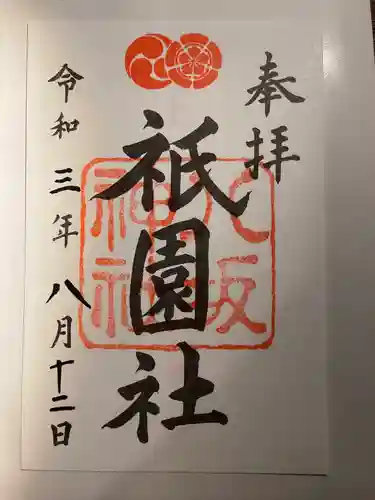 奉拝
八坂
神社
祇園社
令和三年八月十二日